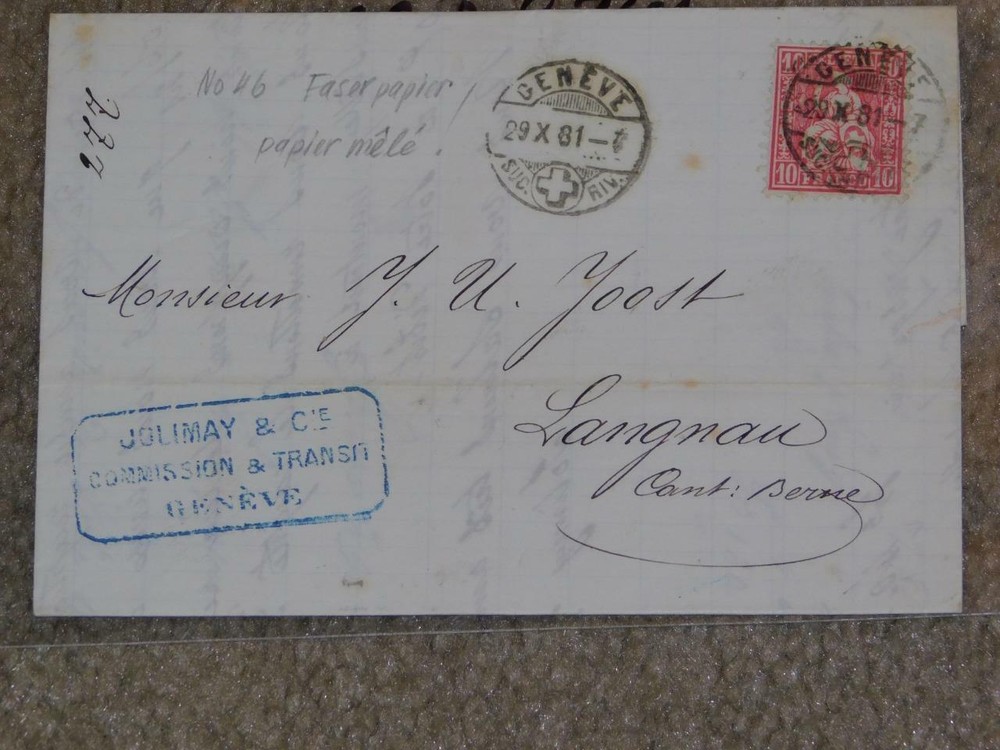 No 46 Faserpapier,
papier mêlé.
GENÈVE
29 X 81–7
SUC. RIV.
10 10
GENÈVE
29 X 81–7
SUC.
10 10
Monsieur J. U. Joost
Langnau
Cant: Berne
JOLIMAY & CIE
COMMISSION & TRANSIT
GENÈVE